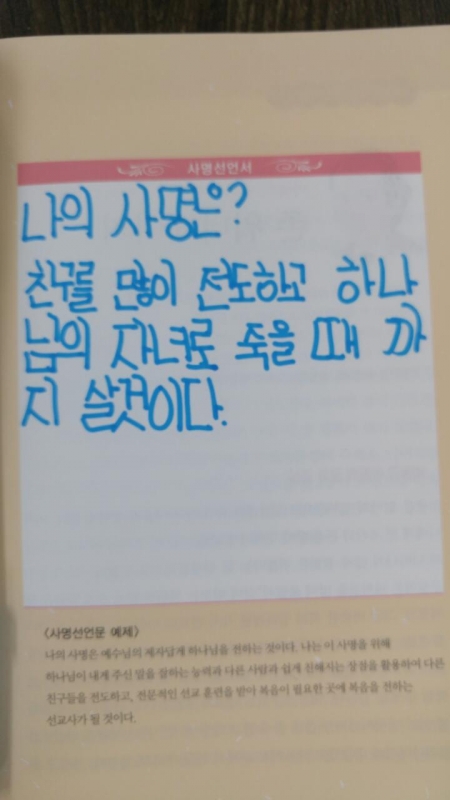 사명선언서
나의 사명은?
친구를 많이 전도하고 하나
님의 자녀로 죽을 때 까
지 살것이다.
<사명선언문 예제>
나의 사명은 예수님의 제자답게 하나님을 전하는 것이다. 나는 이 사명을 위해
하나님이 내게 주신 말을 잘하는 능력과 다른 사람과 쉽게 친해지는 장점을 활용하여 다른
친구들을 전도하고, 전문적인 선교 훈련을 받아 복음이 필요한 곳에 복음을 전하는
선교사가 될 것이다.